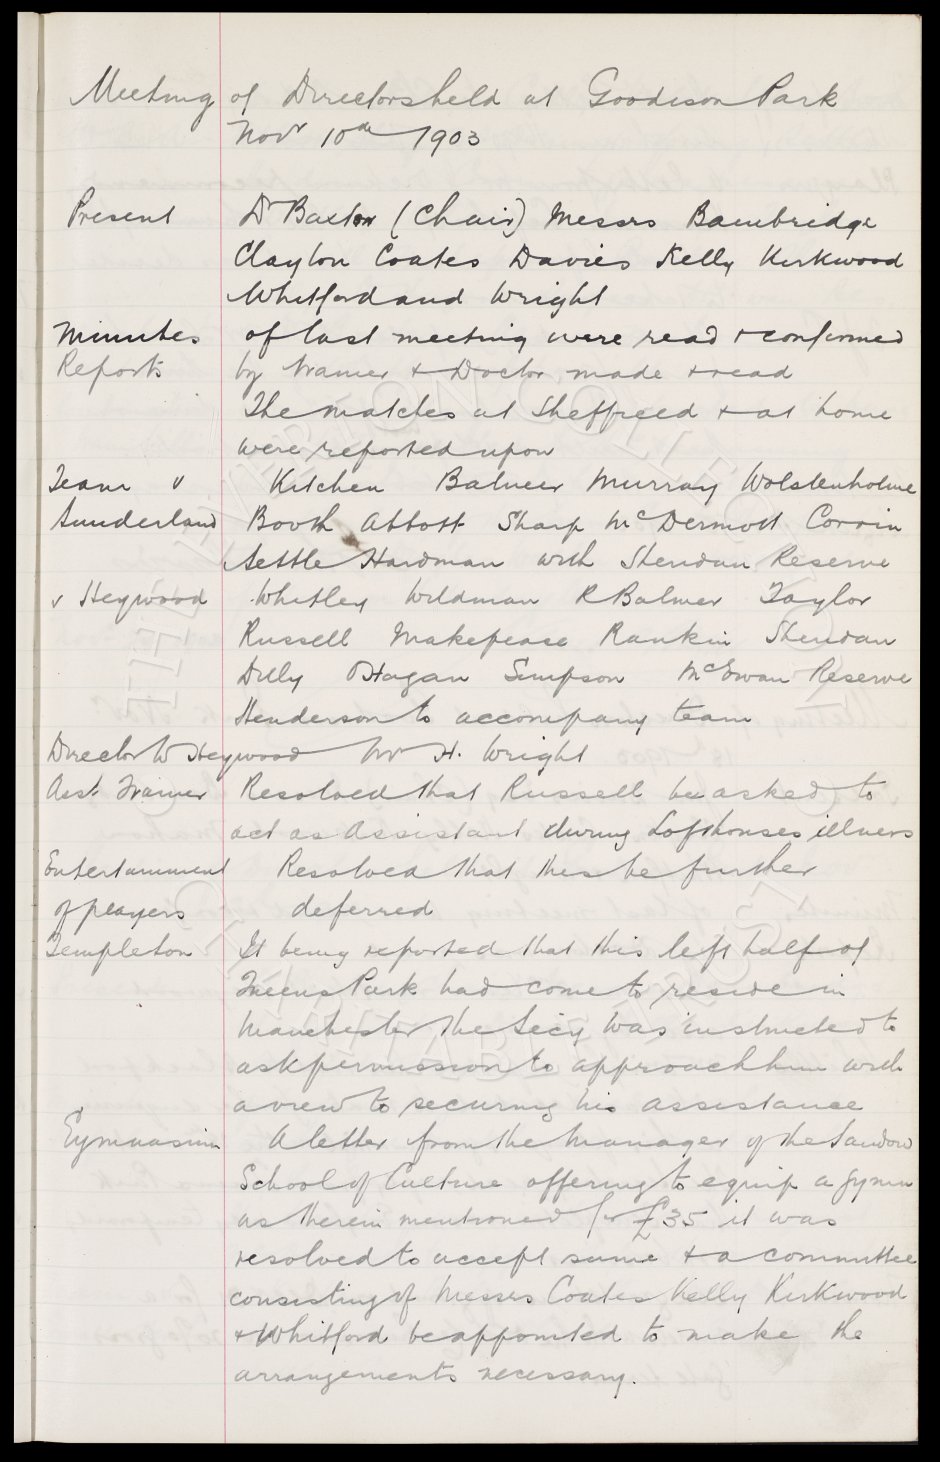 Meeting of Directors held at Goodison Park
Novr 10th 1903
Present Dr Baxter (Chair) Messrs Bainbridge
Clayton Coates Davies Kelly Kirkwood
Whitford and Wright
Minutes of last meeting were read + confirmed
Reports by Trainer + Doctor made + read
The matches at Sheffield + at home
were reported upon
Team v Kitchen Balmer Murray Wolstenholme
Sunderland Booth Abbott Sharp McDermott Corrin
Settle Hardman with Sheridan Reserve
v Heywood Whitley Wildman R Balmer Taylor
Russell Makepeace Rankin Sheridan
Dilly OHagan Simpson McEwan Reserve
Henderson to accompany team
Director to Heywood Mr H. Wright
Asst. Trainer Resolved that Russell be asked to
act as Assistant during Lofthouses illness
Entertainment Resolved that this be further
of players deferred
Templeton It being reported that this left half of
Queens Park had come to reside in
Manchester the Secy was instructed to
ask permission to approach him with
a view to securing his assistance
Gymnasium A letter from the Manager of the Sandow
School of Culture offering to equip a gymn
as therein mentioned for £35 it was
resolved to accept same + a committee
consisting of Messrs Coates Kelly Kirkwood
+ Whitford be appointed to make the
arrangements necessary.
EVERTON COLLECTION
CHARITABLE TRUST